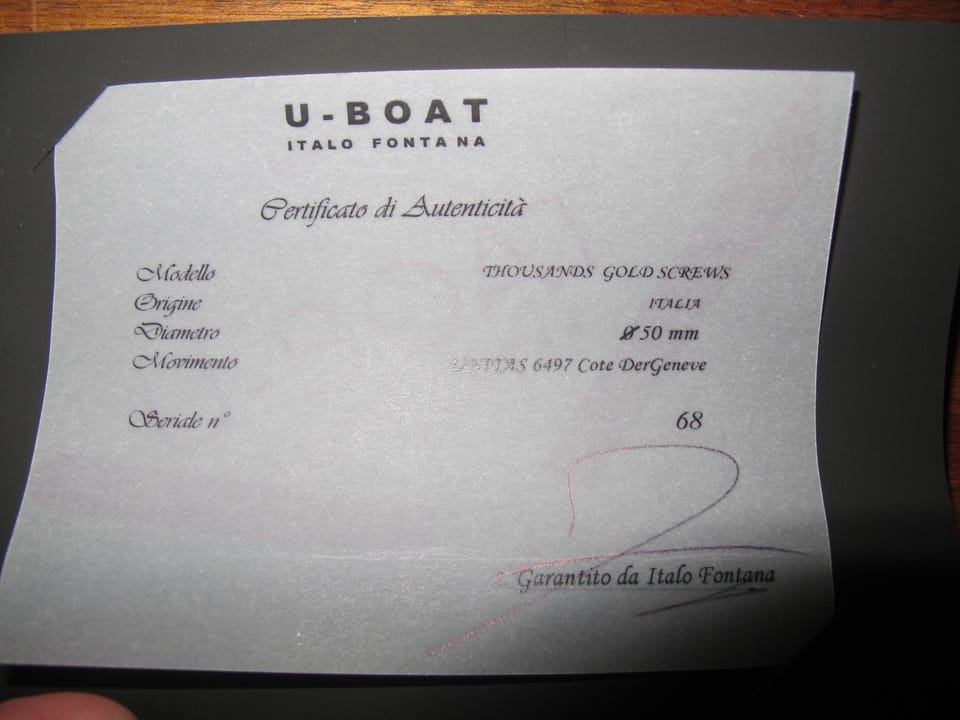 U-BOAT
ITALO FONTANA
Certificato di Autenticità
Modello THOUSANDS GOLD SCREWS
Origine ITALIA
Diametro Ø 50 mm
Movimento UNITAS 6497 Cote DerGeneve
Seriale n° 68
Garantito da Italo Fontana